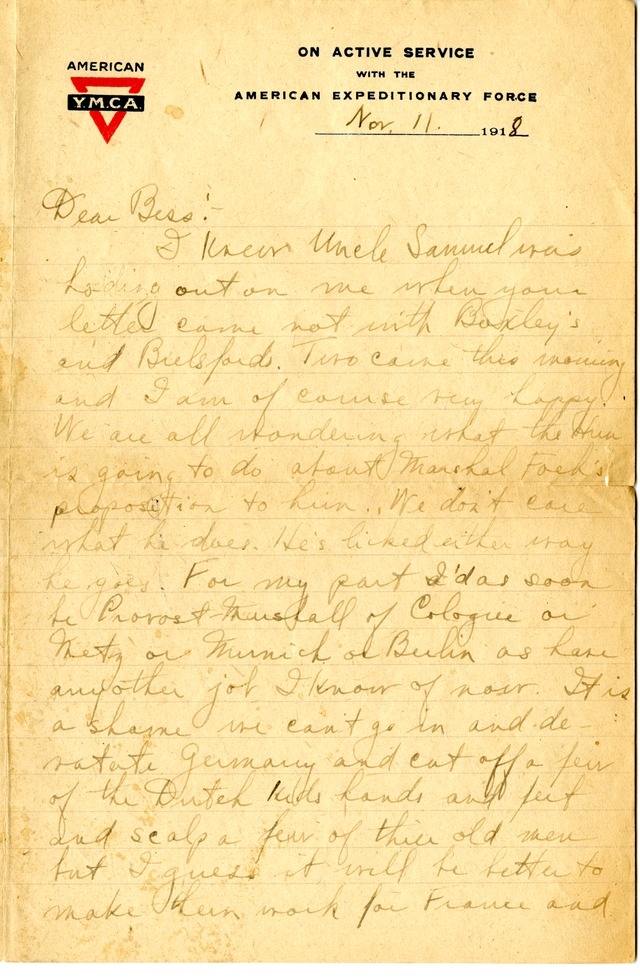 AMERICAN
Y.M.C.A.
ON ACTIVE SERVICE
WITH THE
AMERICAN EXPEDITIONARY FORCE
Nov. 11. 1918
Dear Bess:-
I knew Uncle Samuel was
holding out on me when your
letter came not with Boxley's
and Bielsfords. Two came this morning
and I am of course very happy.
We are all wondering what the Hun
is going to do about Marshal Foch's
proposition to him. We don't care
what he does. He's licked either way
he goes. For my part I'd as soon
be Provost Marshall of Cologne or
Metz or Munich or Berlin as have
any other job I know of now. It is
a shame we can't go in and de-
vatate Germany and cut off a few
of the Dutch kids hands and feet
and scalp a few of thier old men
but I guess it will be better to
make them work for France and